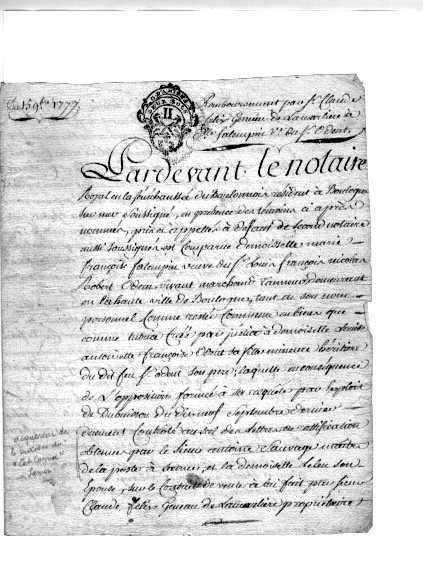 Du 15 9bre 1777
Remboursement par Sr Claude
felix Geneau de Lamarliere à
Dlle falempin Ve du Sr Odent
Pardevant le notaire
Royal en la Senechaussée du Boulonnois resident à Boulogne
sur mer Soussigné, en presence des temoins ci après
nommés, pris et appellés à deffaut de second notaire
aussi soussignés est Comparue demoiselle marie
françoise falempin veuve du Sr Louis françois nicolas
Robert Odent vivant marchand tanneur demeurant
en la haute ville de Boulogne, tant en son nom
personnel Comme restée Commune en biens que
comme tutrice Créée par justice à demoiselle
antoinette françoise Odent sa fille mineure héritiere
du dit feu Sr odent son pere, laquelle en consequence
de L'opposition formée à sa requete par exploit
de Dubuisson du dix neuf Septembre dernier
duement Controlé au scel des Lettres de ratification
obtenues par le Sieur antoine Sauvage maitre
de la poste à et la demoiselle Leleu son
Epouse, sur le Contrat de vente à lui fait par Sieur
Claude felix Geneau de Lamarliere proprietaire
acquisition de
la maison